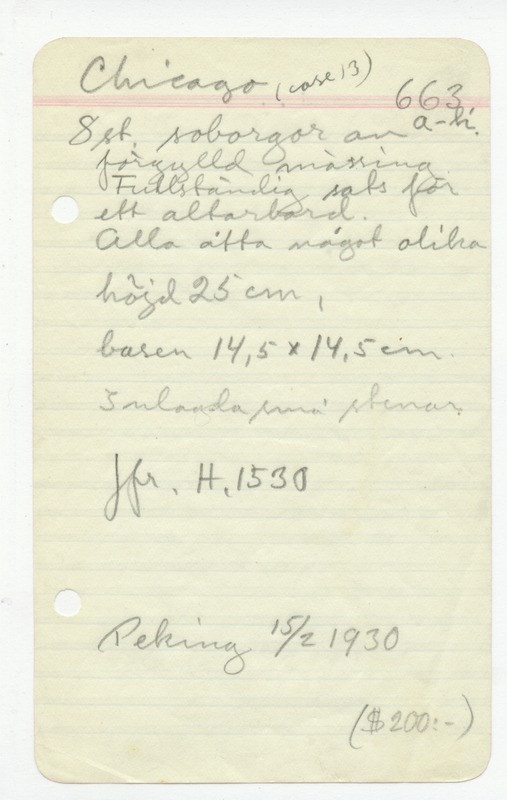 Chicago (case 13)
663.
a-h.
8 st. soborgor av
förgylld mässing.
Fullständig sats för
ett altarbord.
Alla åtta något olika
höjd 25 cm,
basen 14,5 x 14,5 cm.
Inlagda små stenar.
Jfr. H. 1530
Peking 15/2 1930
($ 200:-)